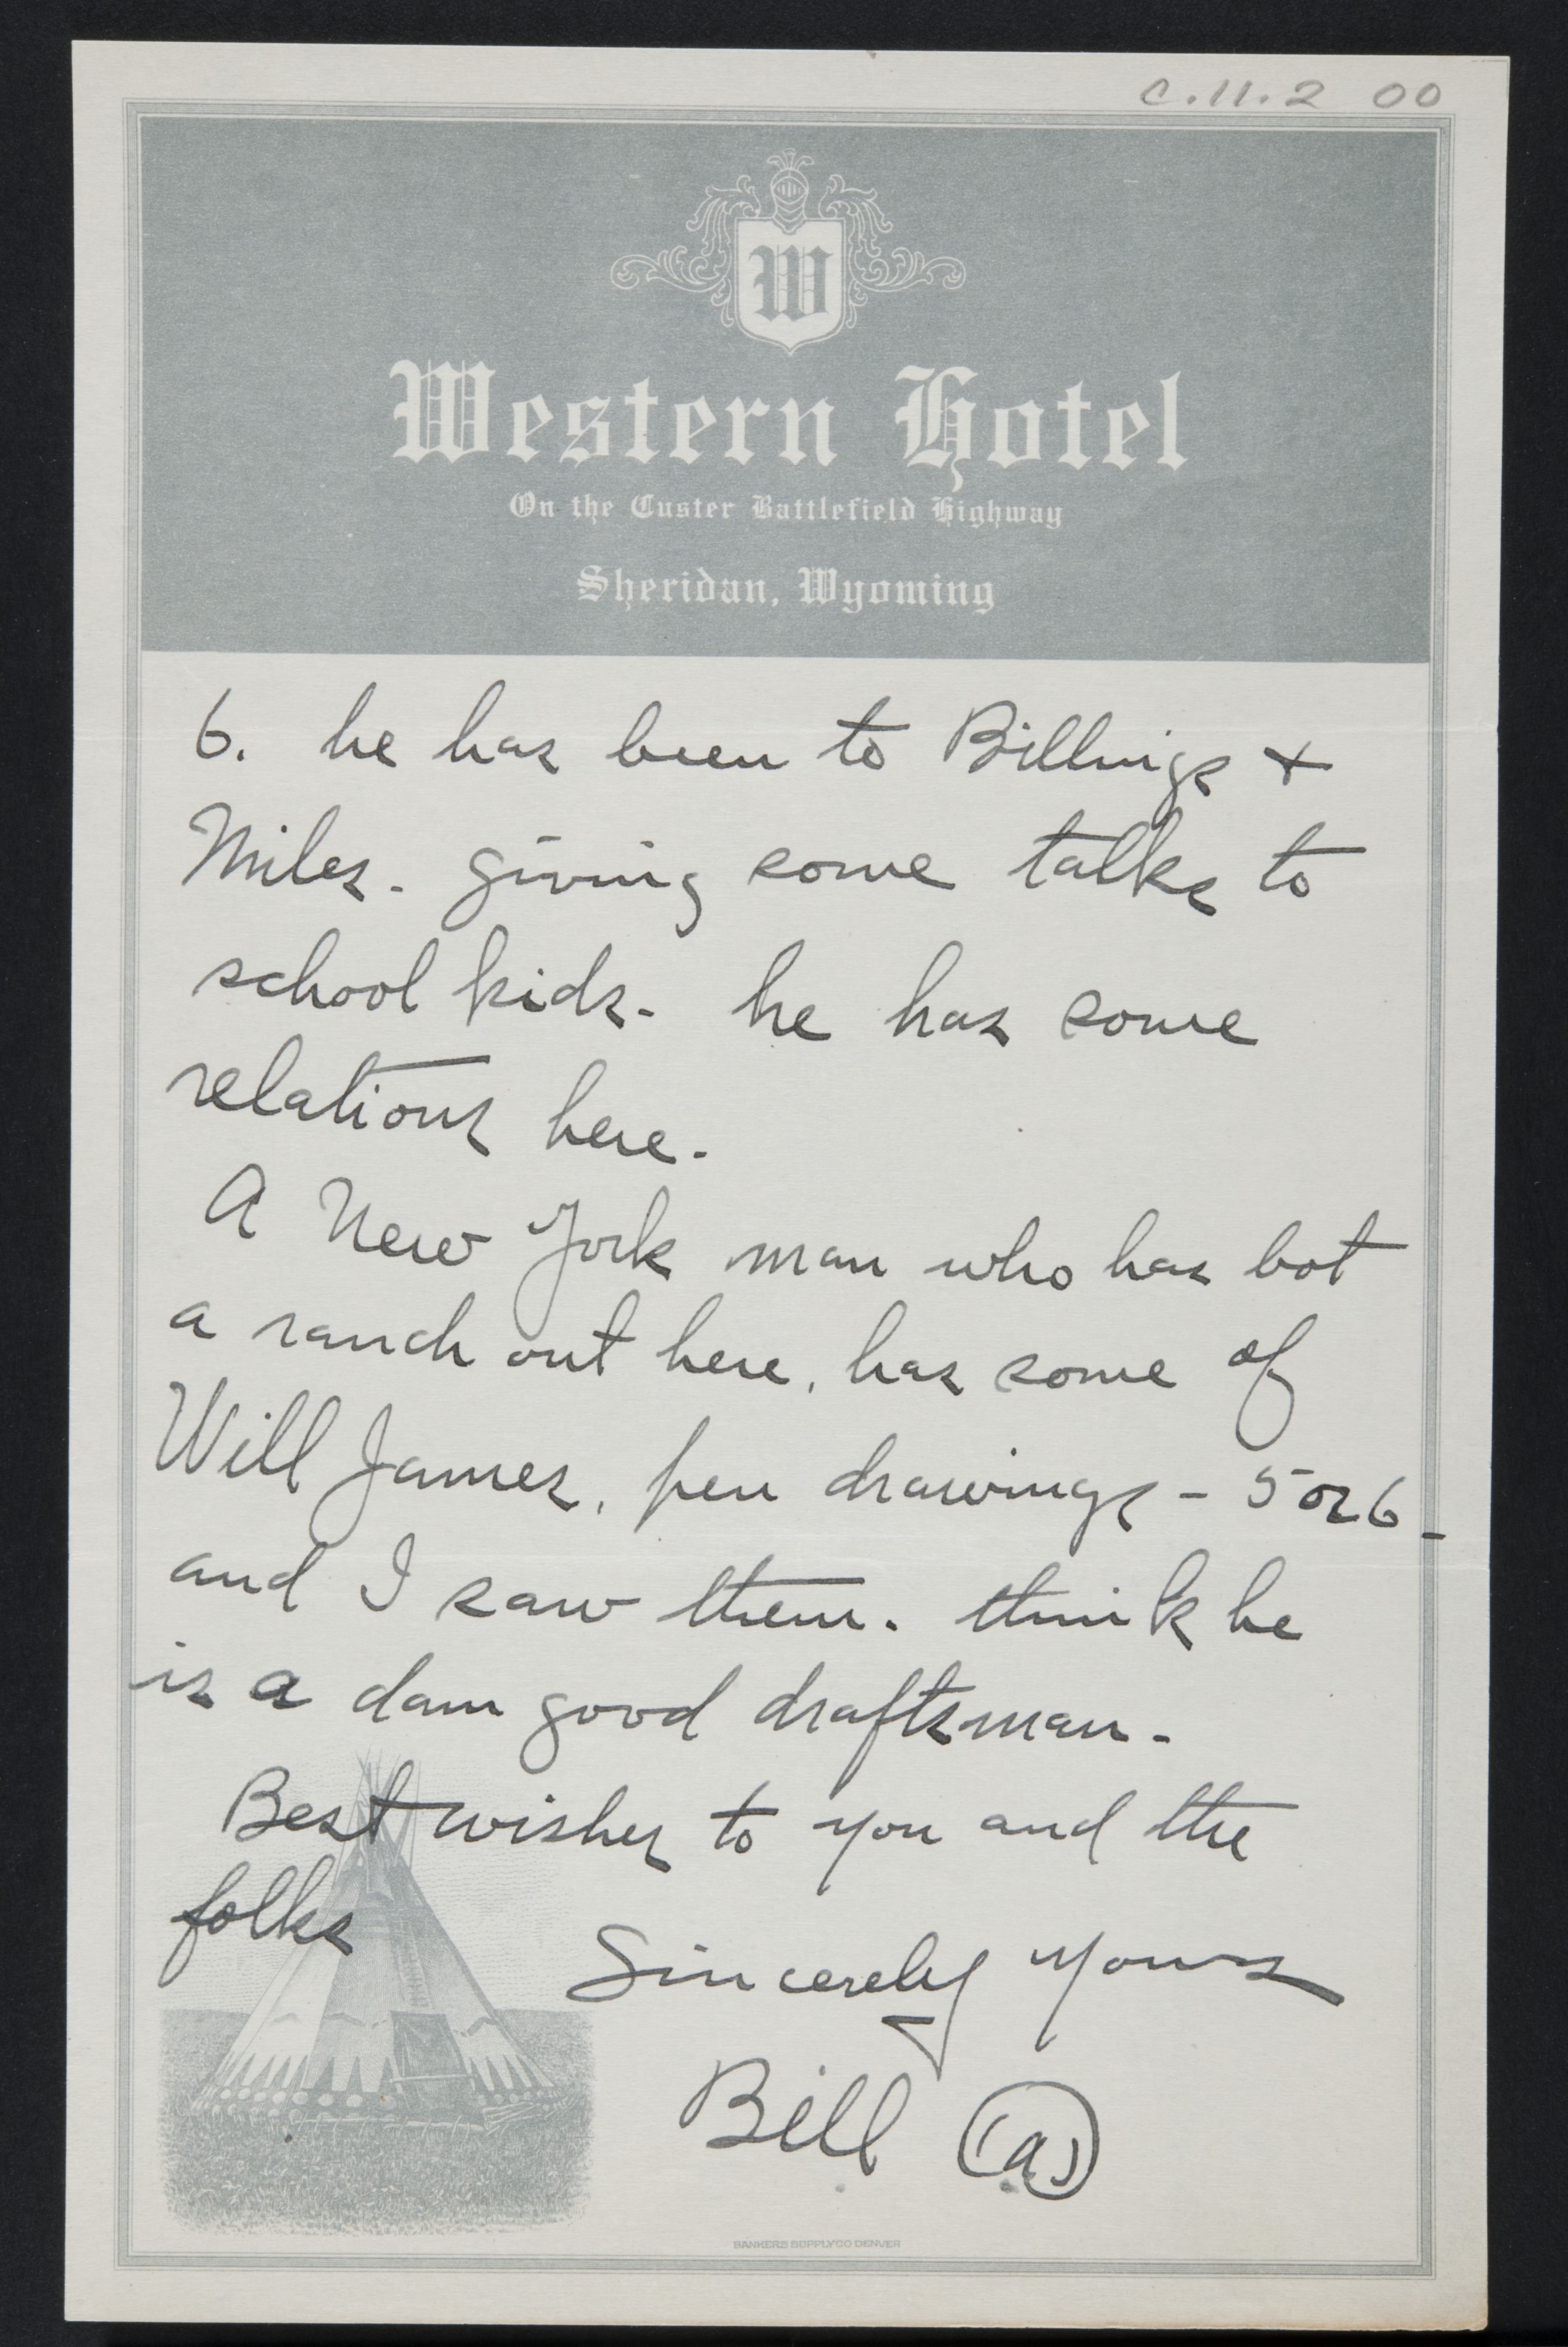 C.11.2 00
W
Western Hotel
On the Custer Battlefield Highway
Sheridan, Wyoming
6. he has been to Billings +
Miles. giving some talks to
school kids. he has some
relations here.
A New York man who has bot
a ranch out here, has some of
Will James, pen drawings - 5 or 6 -
and I saw them. think he
is a dam good draftsman.
Best wishes to you and the
folks
Sincerely yours
Bill (a)
BANKERS SUPPLY CO DENVER